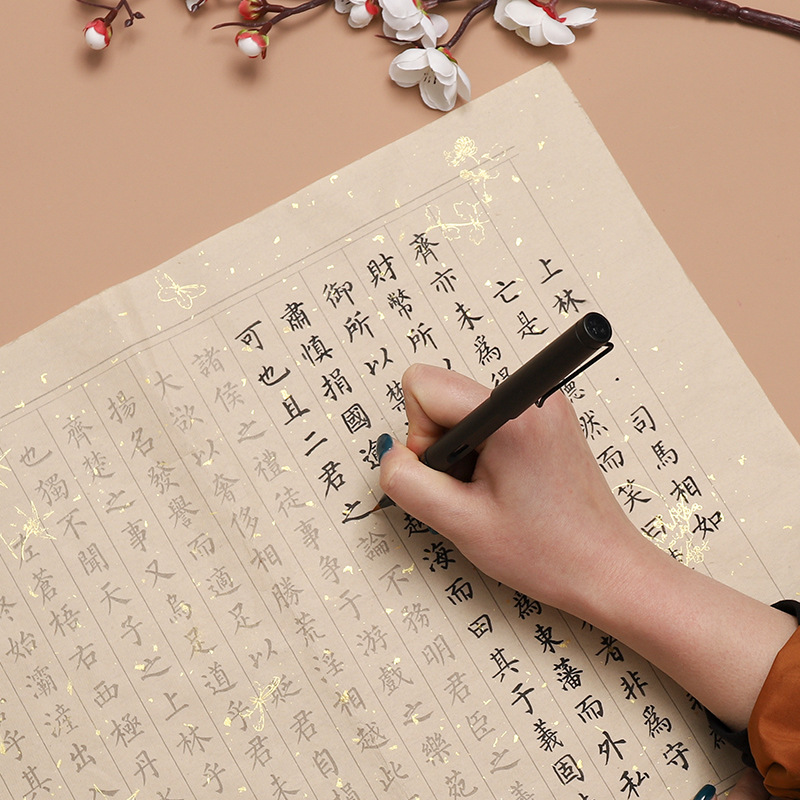 上林 · 司馬相如
亡是然而笑曰
齊亦未為得
財幣所以者非為守
御所以禁為東藩而外私
肅慎捐國逾越海而田其于義固
可也且二君之論不務明君臣之
諸侯之禮徒事爭于游戲之樂苑
大欲以奢侈相勝荒淫相越此
揚名發譽而適足以貶君自
齊楚之事又烏足道乎君未
也獨不聞天子之上林乎
左蒼梧右西極丹
終始灞滻出
乎其